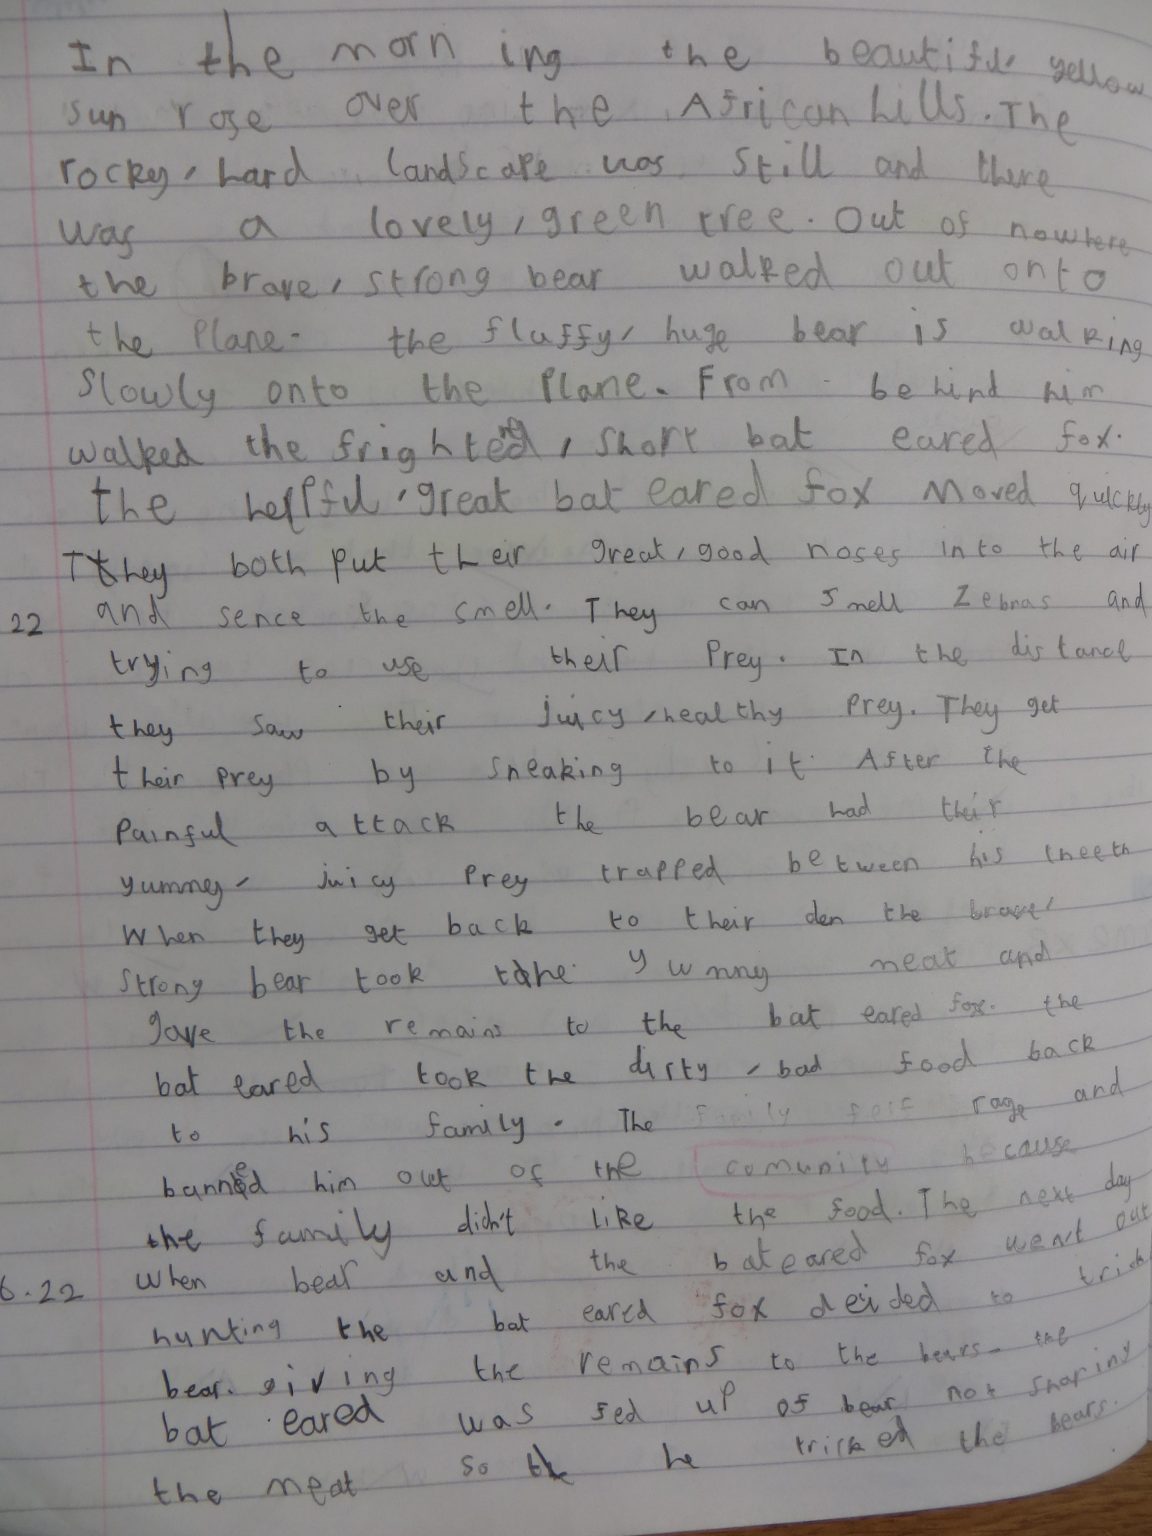 In the morning the beautiful yellow
sun rose over the African hills. The
rocky, hard landscape was still and there
was a lovely, green tree. Out of nowhere
the brave, strong bear walked out onto
the Plane. the fluffy, huge bear is walking
Slowly onto the Plane. From behind him
walked the frightened, short bat eared fox.
the helpful, great bat eared fox Moved quickly
They both put their great, good noses into the air
22 and sence the smell. They can smell Zebras and
trying to use their Prey. In the distance
they saw their juicy, healthy Prey. They get
their prey by sneaking to it. After the
Painful attack the bear had their
yummy, juicy Prey trapped between his theeth
When they get back to their den the brave,
strong bear took the yummy meat and
gave the remains to the bat eared fox. the
bat eared took the dirty, bad food back
to his family. The family rage and
banned him out of the comunity because
the family didn't like the food. The next day
6.22 When bear and the bat eared fox went out
hunting the bat eared fox decided to trick
bear. giving the remains to the bears. the
bat eared was fed up of bear not sharing
the meat so he tricked the bears.